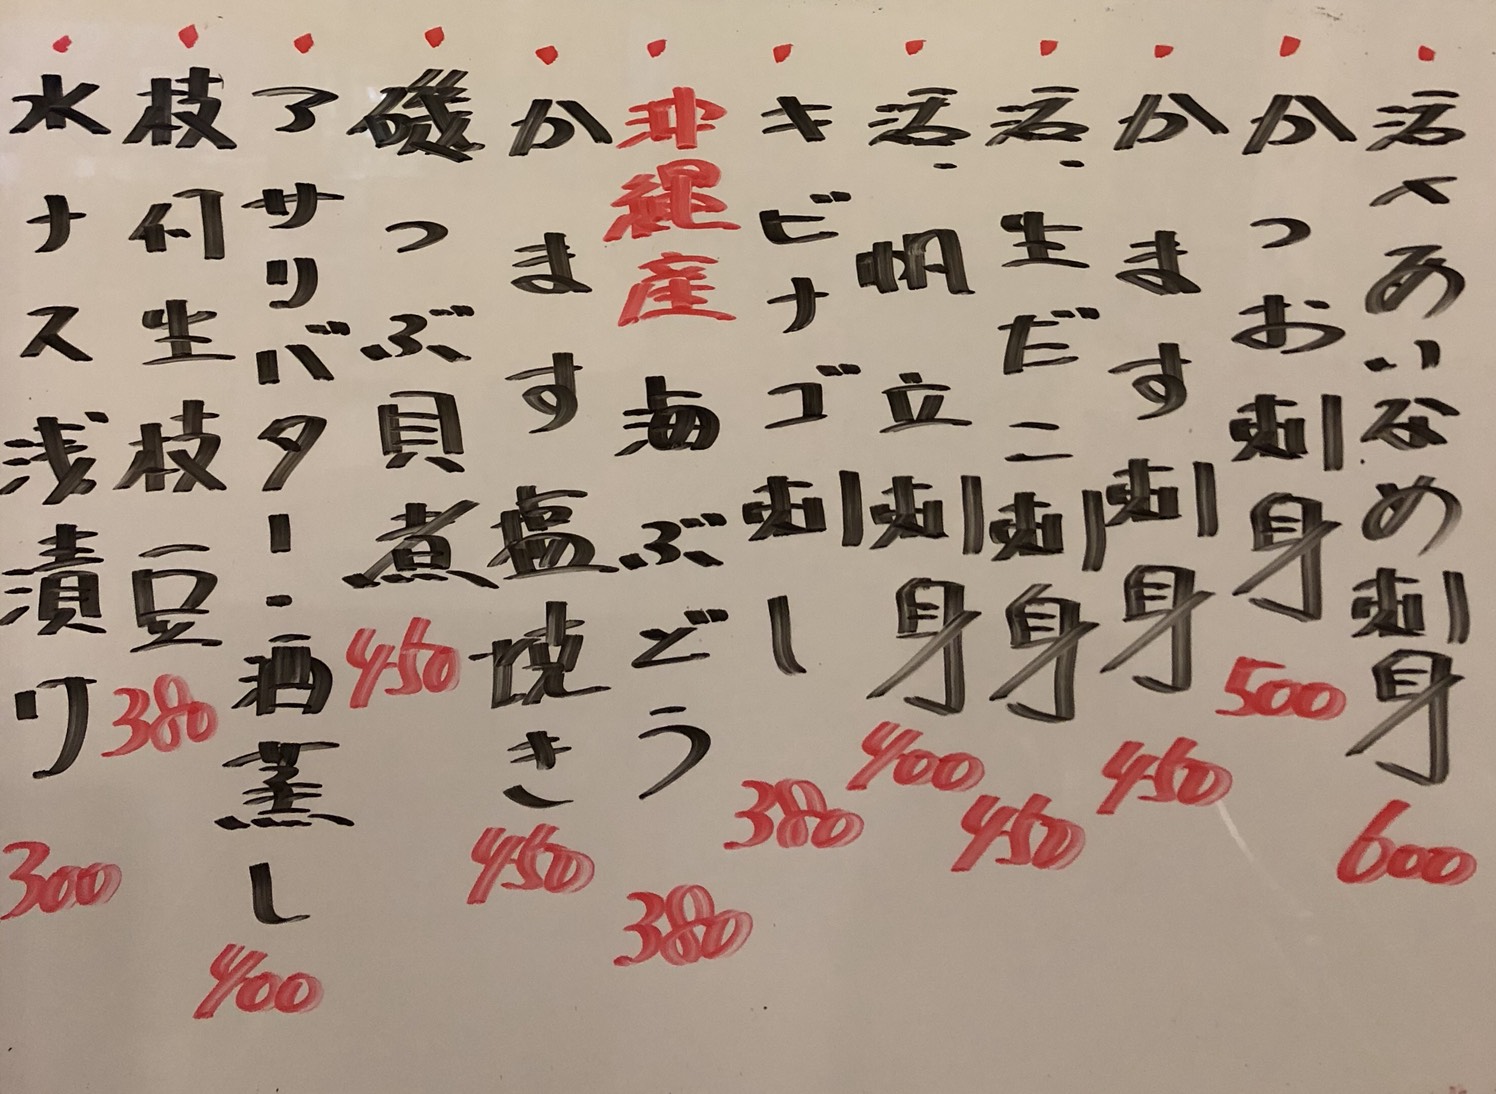 ・活〆あいなめ刺身 600
・かつお刺身 500
・かます刺身 450
・活・生だこ刺身 450
・活・帆立刺身 400
・キビナゴ刺し 380
・沖縄産 海ぶどう 380
・かます塩焼き 450
・磯つぶ貝煮 450
・アサリバター・酒蒸し 400
・枝付生枝豆 380
・水ナス浅漬け 300